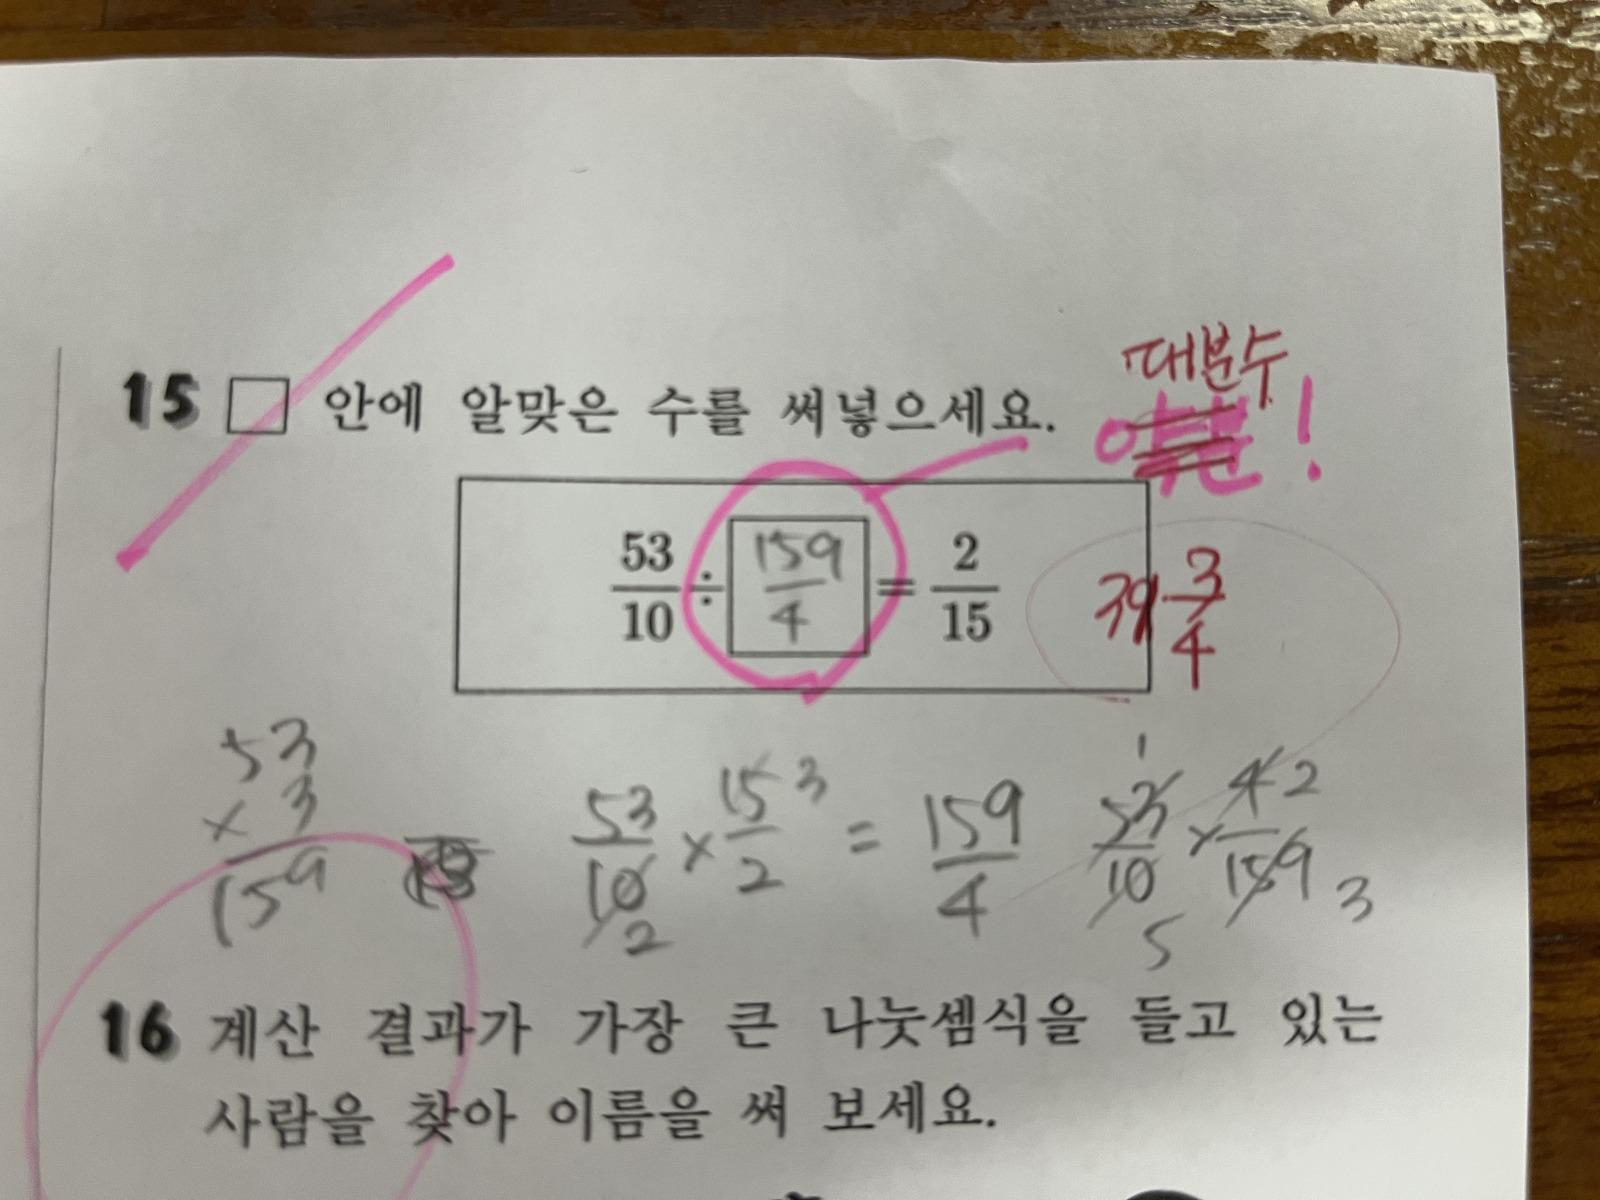 대분수
15 □ 안에 알맞은 수를 써넣으세요. !
53/10 ÷ 159/4 = 2/15 39 3/4
53
× 3
159
53/10 2 × 15/2 3 = 159/4
1 53/10 5 × 4/159 2 3
16 계산 결과가 가장 큰 나눗셈식을 들고 있는
사람을 찾아 이름을 써 보세요.